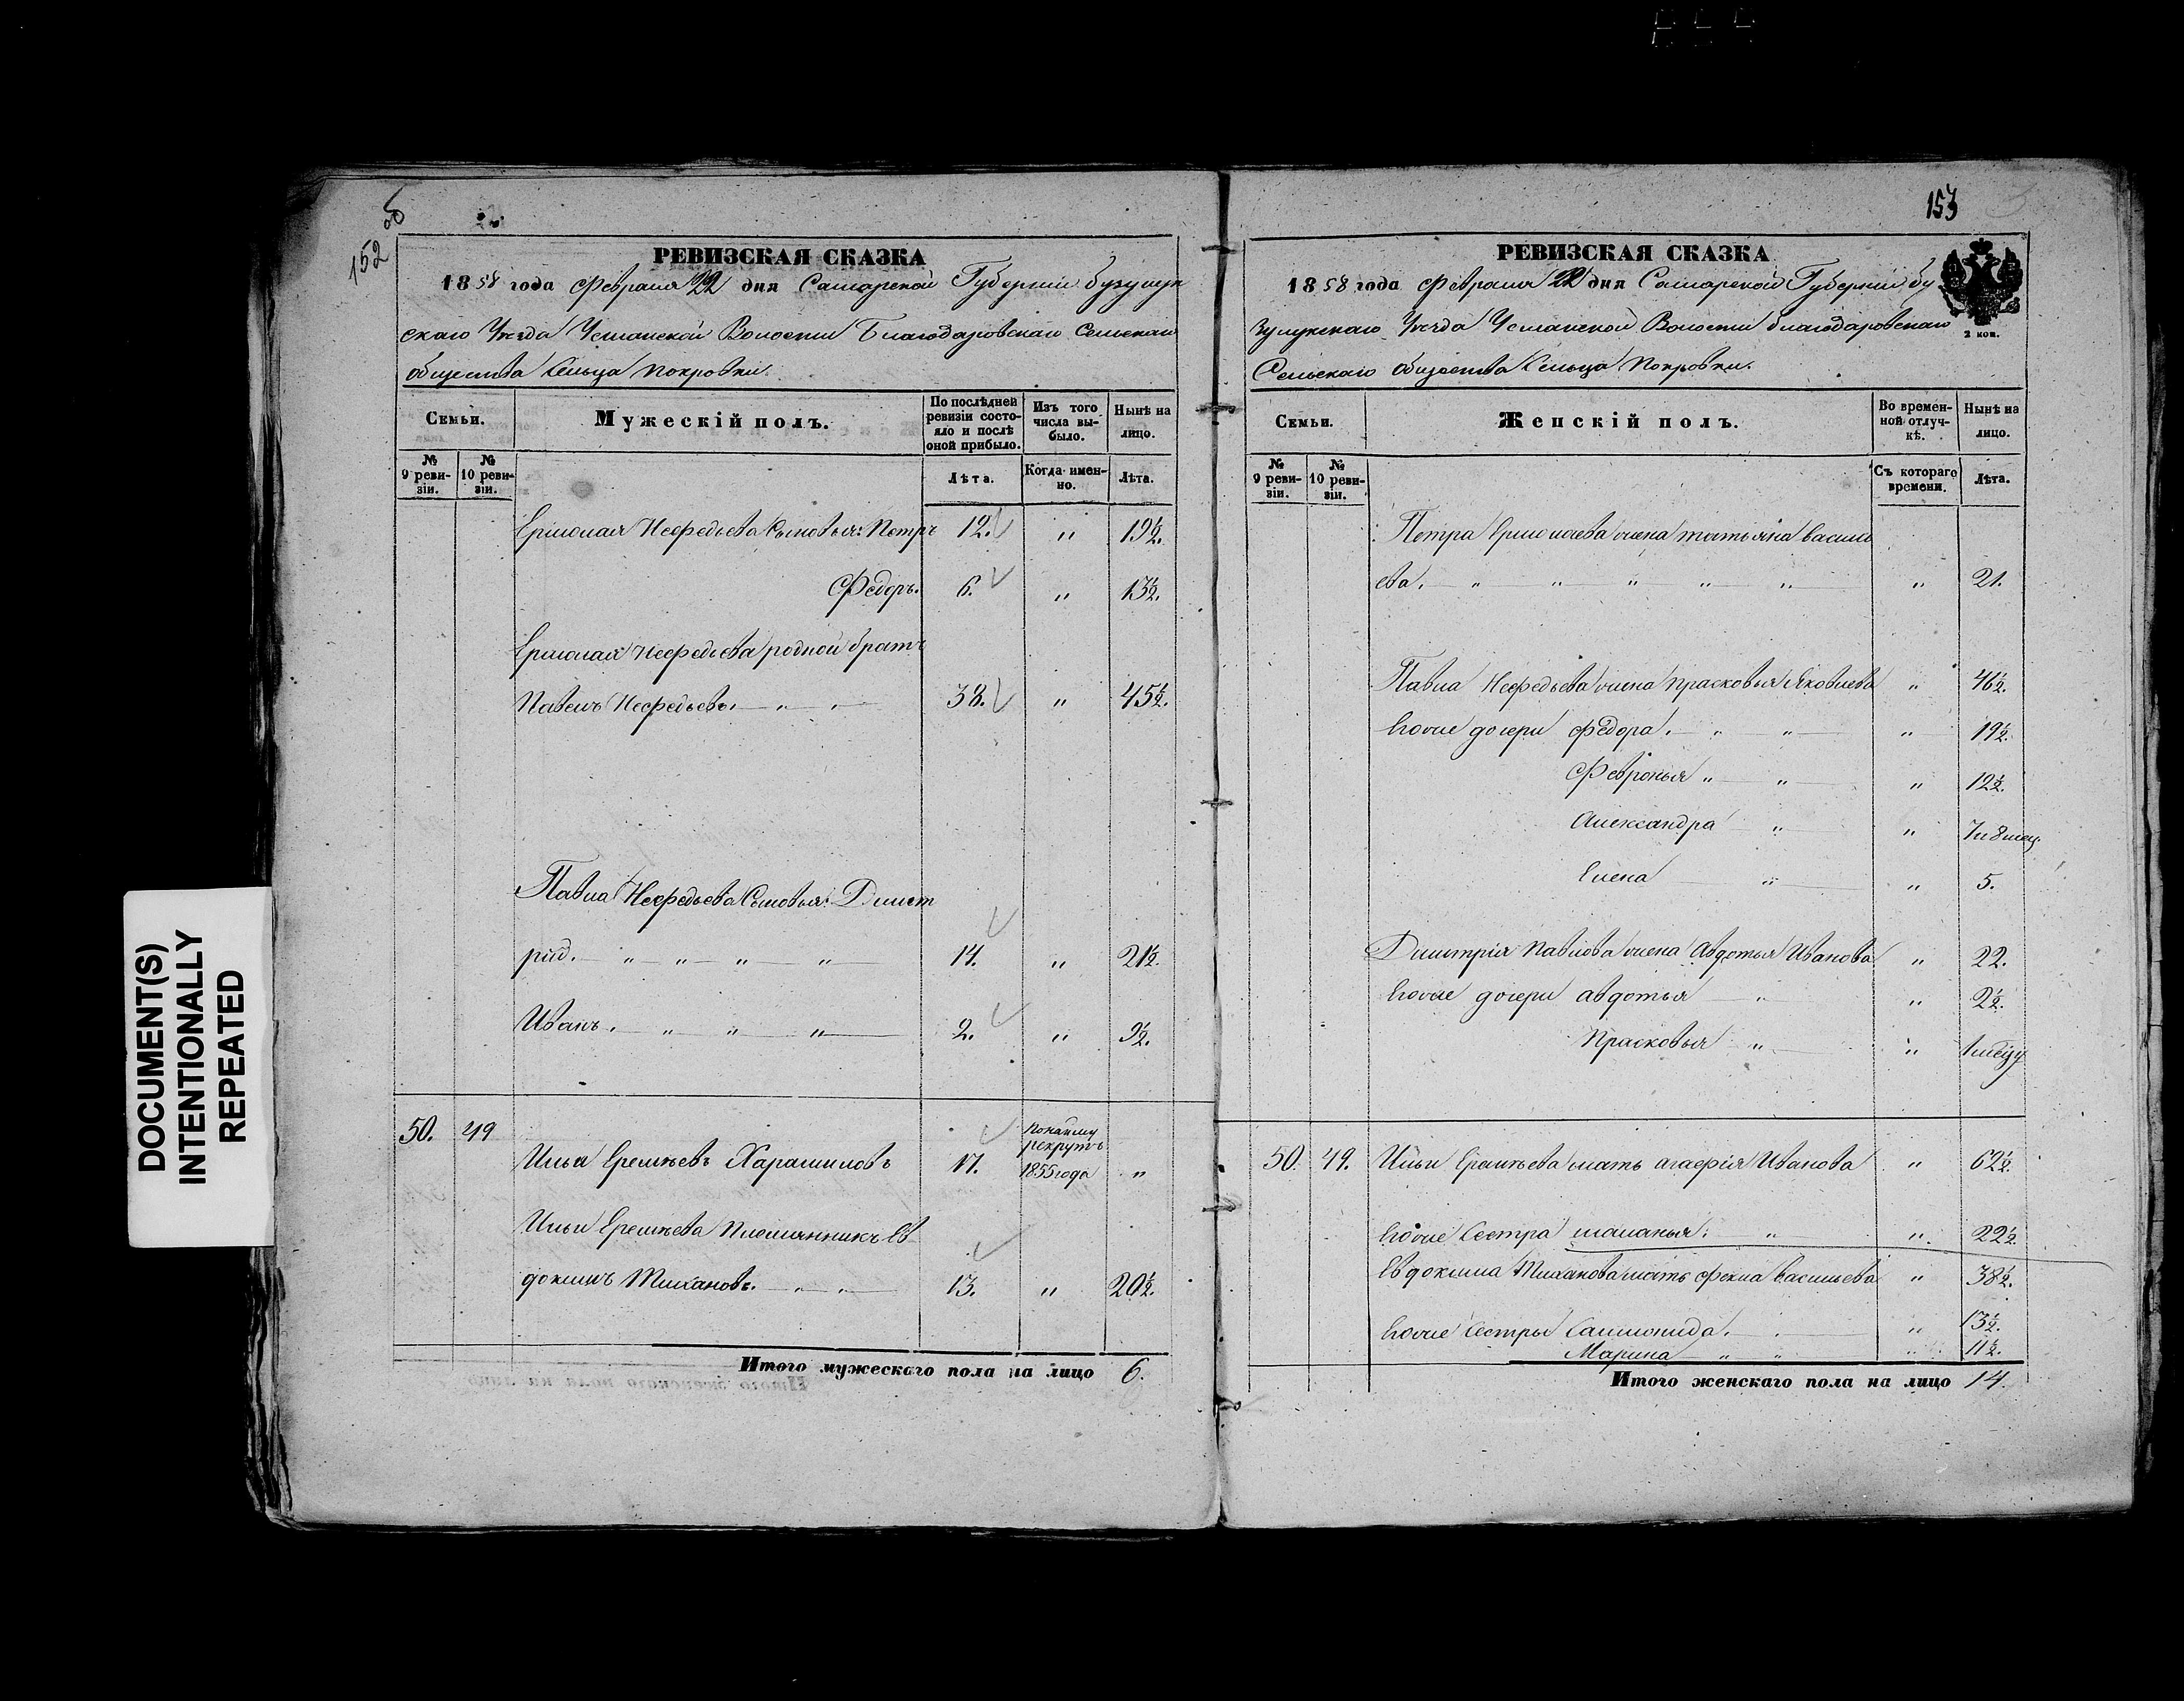 DOCUMENT(S)
INTENTIONALLY
REPEATED
152 об
РЕВИЗСКАЯ СКАЗКА
1858 года Февраля 22 дня Самарской Губерніи бузулук
скаго Уѣзда Усманской Волости Благодаровскаго Сельскаго
общества Сельца Покровки.
Семьи.
Мужескій полъ.
По послѣдней ревизіи состояло и послѣ оной прибыло.
Изъ того числа выбыло.
Нынѣ на лицо.
№ 9 ревизіи.
№ 10 ревизіи.
Лѣта.
Когда именно.
Лѣта.
Ермолая Нефедьева Сыновья: Петръ 12. " 19½.
Федоръ. 6. " 13½.
Ермолая Нефедьева родной братъ
Павелъ Нефедьевъ. " 38. " 45½.
Павла Нефедьева Сыновья: Димит
рій. " " " " 14. " 21½.
Иванъ. " " " 2. " 9½.
50. 49
Илья Еремѣевъ Харашиловъ 17. По найму рекрутъ 1855 года "
Ильи Еремѣева Племянникъ Ев
докимъ Михаиловъ. " " 13. " 20½.
Итого мужескаго пола на лицо 6.
153
РЕВИЗСКАЯ СКАЗКА
1858 года Февраля 22 дня Самарской Губерніи бу
зулукскаго Уѣзда Усманской Волости благодаровскаго
Сельскаго общества Сельца Покровки.
2 коп.
Семьи.
Женскій полъ.
Во временной отлучкѣ.
Нынѣ на лицо.
№ 9 ревизіи.
№ 10 ревизіи.
Съ котораго времени.
Лѣта.
Петра Ермолаева жена татьяна василь
ева. " " " " " " 21.
Павла Нефедьева жена прасковья Яковлева " 46½.
Егоже дочери федора. " " " 19½.
Февронья " " " 12½.
Александра " " 7 и 8 мец.
Елена " " 5.
Димитрія Павлова жена Авдотья Иванова " 22.
Егоже дочери авдотья " " 2½.
Прасковья " "
50. 49. Ильи Еремѣева мать агафія Иванова " 62½.
Егоже Сестра маланья. " " 22½
Евдокима Михаилова мать фекла васильева " 38½.
Егоже Сестры Саломонида. " 13½.
Марина " " " 11½.
Итого женскаго пола на лицо 14.